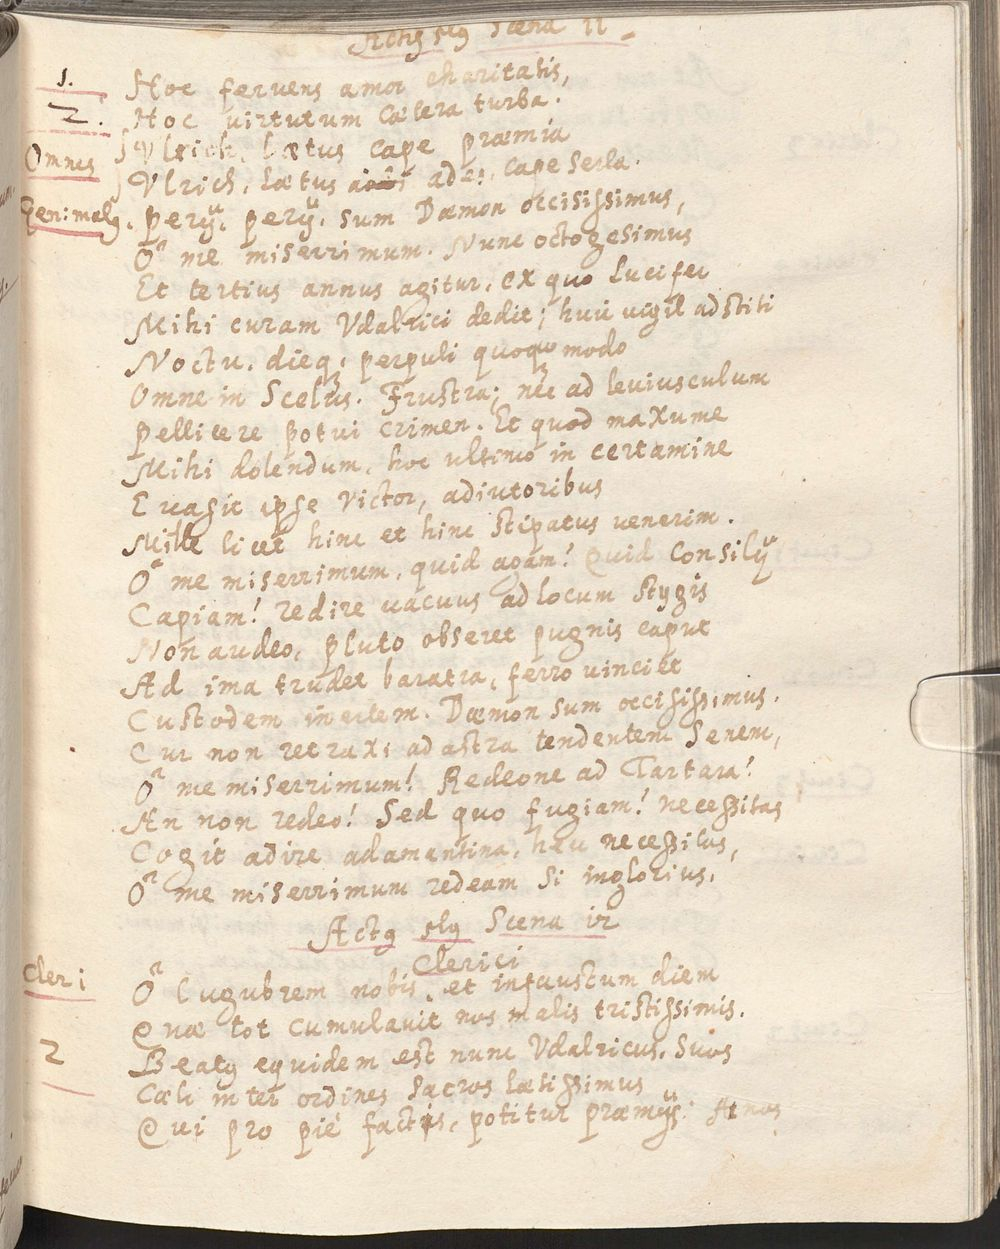 Actus Scena II
1. Hoc feruens amor charitatis,
2. Hoc uirtutum Cætera turba.
Omnes Vlrich, lætus cape præmia
Vlrich, Lætus ades, cape Serta.
Gen: malg. Perÿ, perÿ, sum Dæmon occisissimus,
O me miserrimum. Nunc octogesimus
Et tertius annus agitur, ex quo Lucifer
Mihi curam Vdalrici dedit; huic uigil adstiti
Noctu, dieq, perpuli quoquo modo
Omne in Scelus. Frustra; nec ad leuiusculum
Pellicere potui crimen. Et quod maxume
Mihi dolendum, hoc ultimo in certamine
Euasit ipse Victor, adiutoribus
Mille licet hinc et hinc stipatus uenerim.
O me miserrimum, quid agam! Quid Consilÿ
Capiam! redire uacuus ad locum stygis
Non audeo, Pluto obseret pugnis caput
Ad ima trudet baratra, ferro uinciet
Custodem inertem. Dæmon sum occisissimus.
Cur non retraxi ad astra tendentem Senem,
O me miserrimum! Redeone ad Tartara!
An non redeo! Sed quo fugiam! necessitas
Cogit adire adamantina, heu necessitas,
O me miserrimum redeam si inglorius.
Actg Scena iv
Clerici
Cleri O lugubrem nobis, et infaustum diem
Quæ tot cumulauit nos malis tristissimis.
2 Beatg equidem est nunc Vdalricus, Suos
Cæli inter ordines sacros lætissimus
Qui pro piè factis, potitur præmÿs: At nos